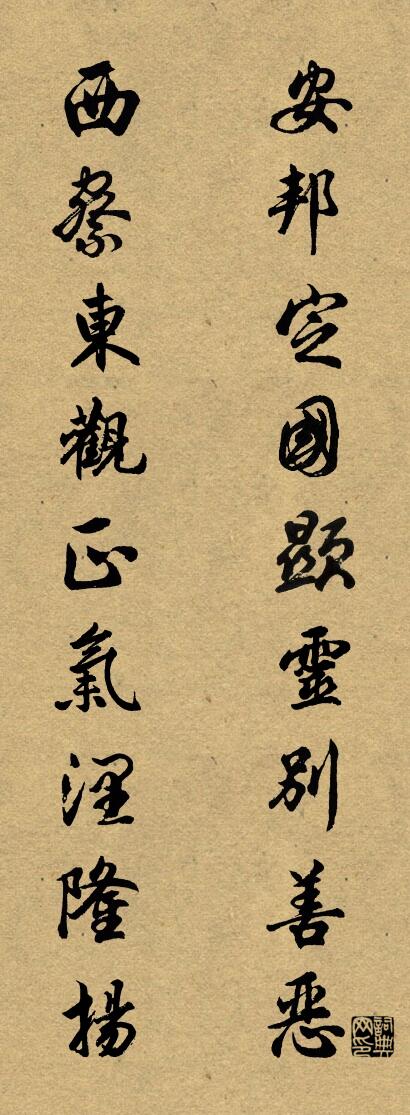 安邦定國顯靈別善惡
西察東觀正氣浬隆揚
詞典網印